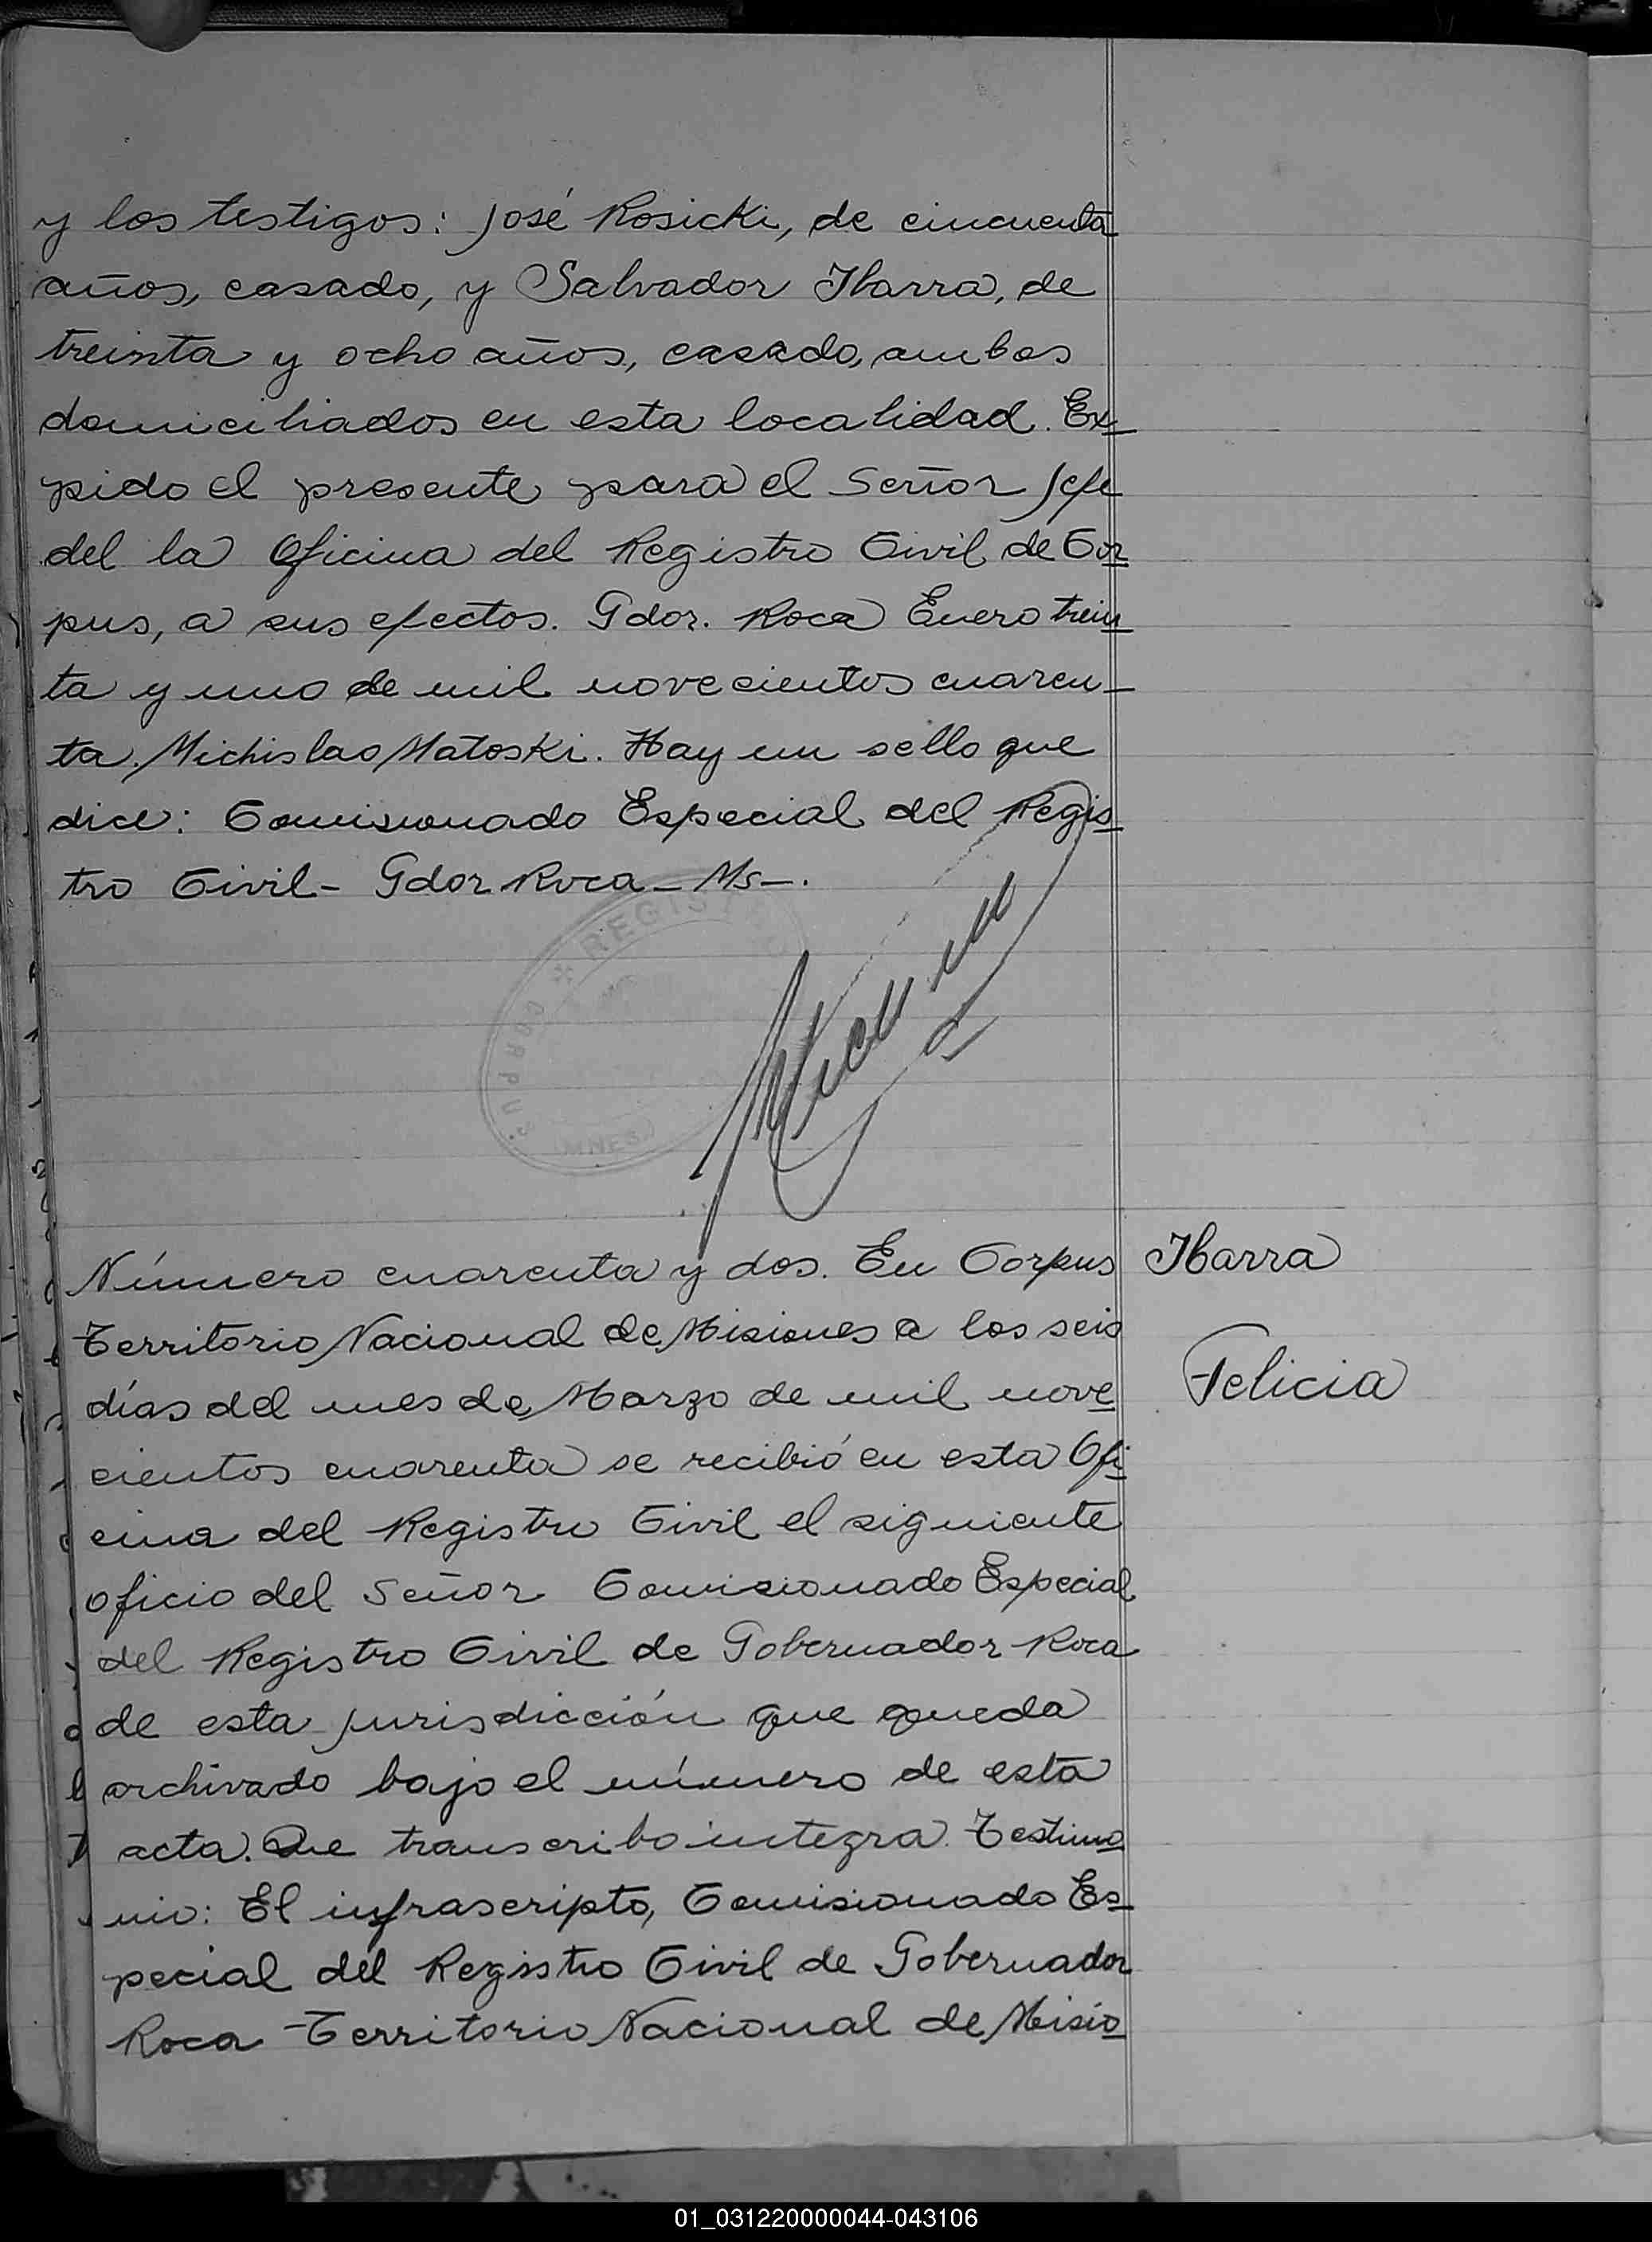 y los testigos: José Rosicki, de cincuenta
años, casado, y Salvador Ibarra, de
treinta y ocho años, casado, ambos
domiciliados en esta localidad. Ex-
pido el presente para el Señor Jefe
del la Oficina del Registro Civil de Cor-
pus, a sus efectos. Gdor. Roca Enero trein-
ta y uno de mil novecientos cuaren-
ta. Michislao Matoski. Hay un sello que
dice: Comisionado Especial del Regis-
tro Civil - Gdor Roca - Ms -.
* REGISTRO
CORPUS
(MNES)
Número cuarenta y dos. En Corpus
Ibarra
Territorio Nacional de Misiones a los seis
Felicia
días del mes de Marzo de mil nove-
cientos cuarenta se recibió en esta Ofi-
cina del Registro Civil el siguiente
oficio del Señor Comisionado Especial
del Registro Civil de Gobernador Roca
de esta jurisdicción que queda
archivado bajo el número de esta
acta. Que transcribo integra. Testimo-
nio: El infrascripto, Comisionado Es-
pecial del Registro Civil de Gobernador
Roca Territorio Nacional de Misio-
01_031220000044-043106